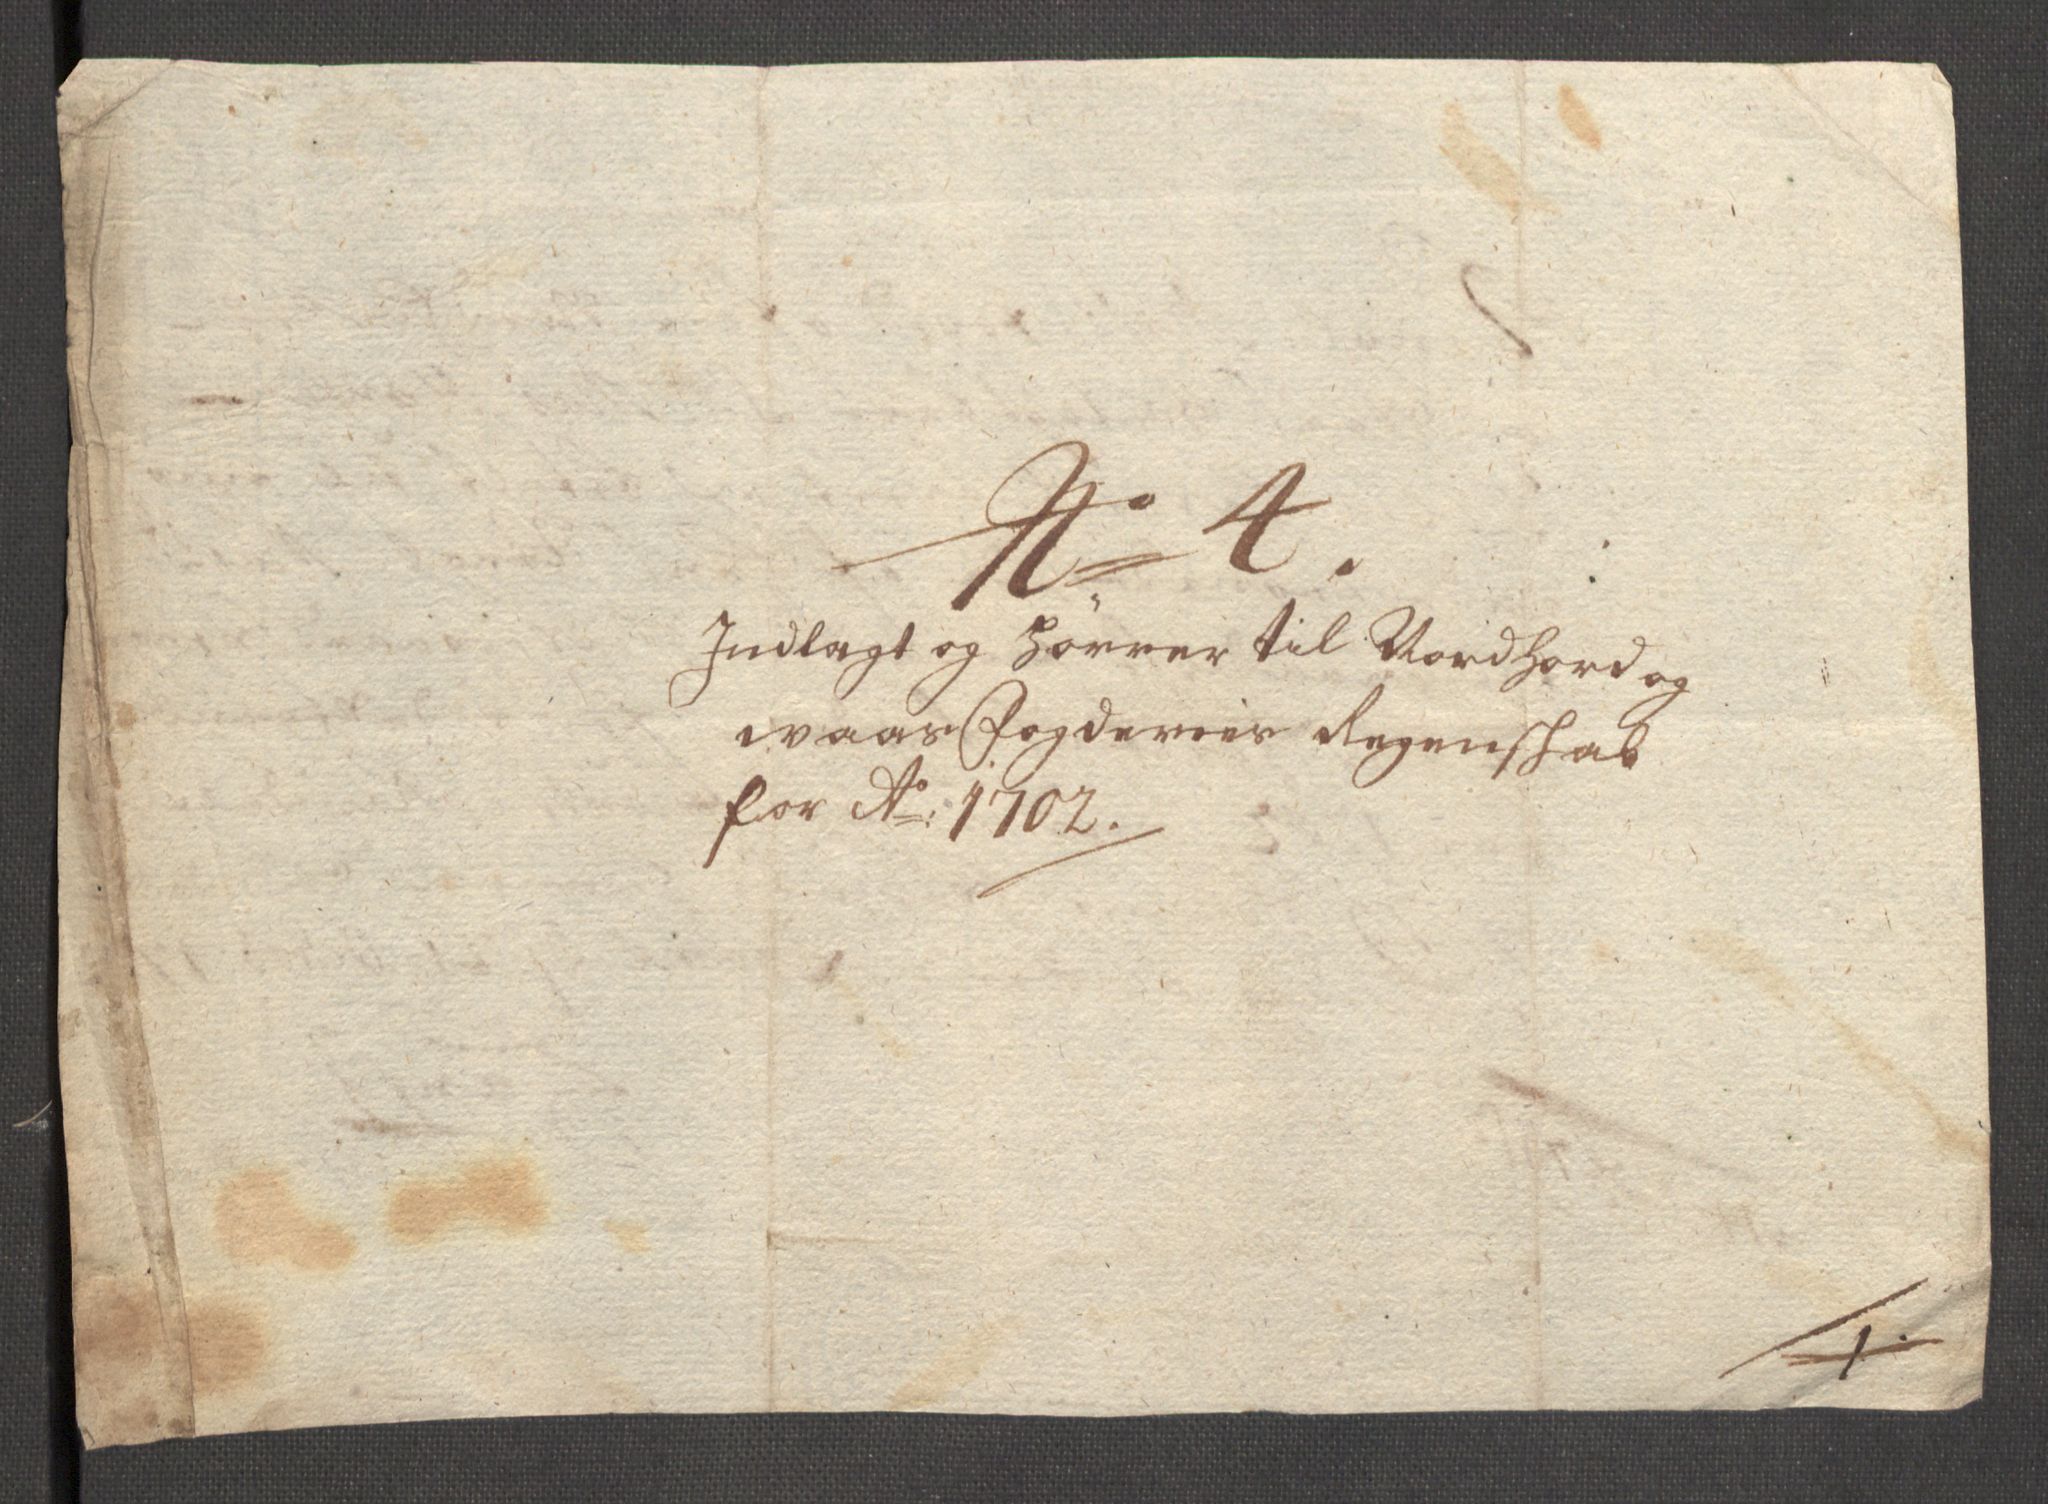 No 4.
Indlagt og hörrer til Nordhord og
waas Fogderies Regenschab
for Ao: 1702.
4.